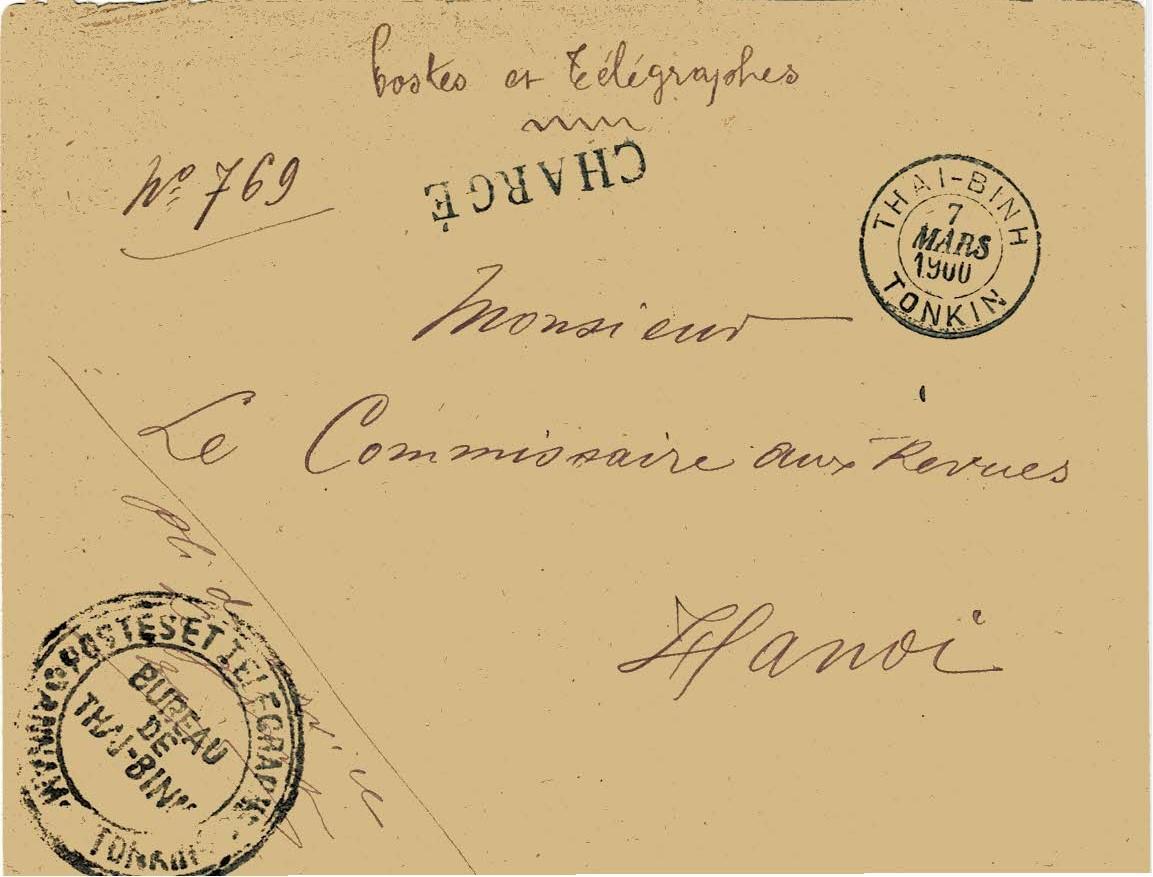 Postes et Télégraphes
CHARGÉ
No. 769
THAI-BINH
7
MARS
1900
TONKIN
Monsieur
Le Commissaire aux Revues
Hanoi
pli de
POSTES ET TELEGRAPHES
BUREAU
DE
THAI-BINH
TONKIN